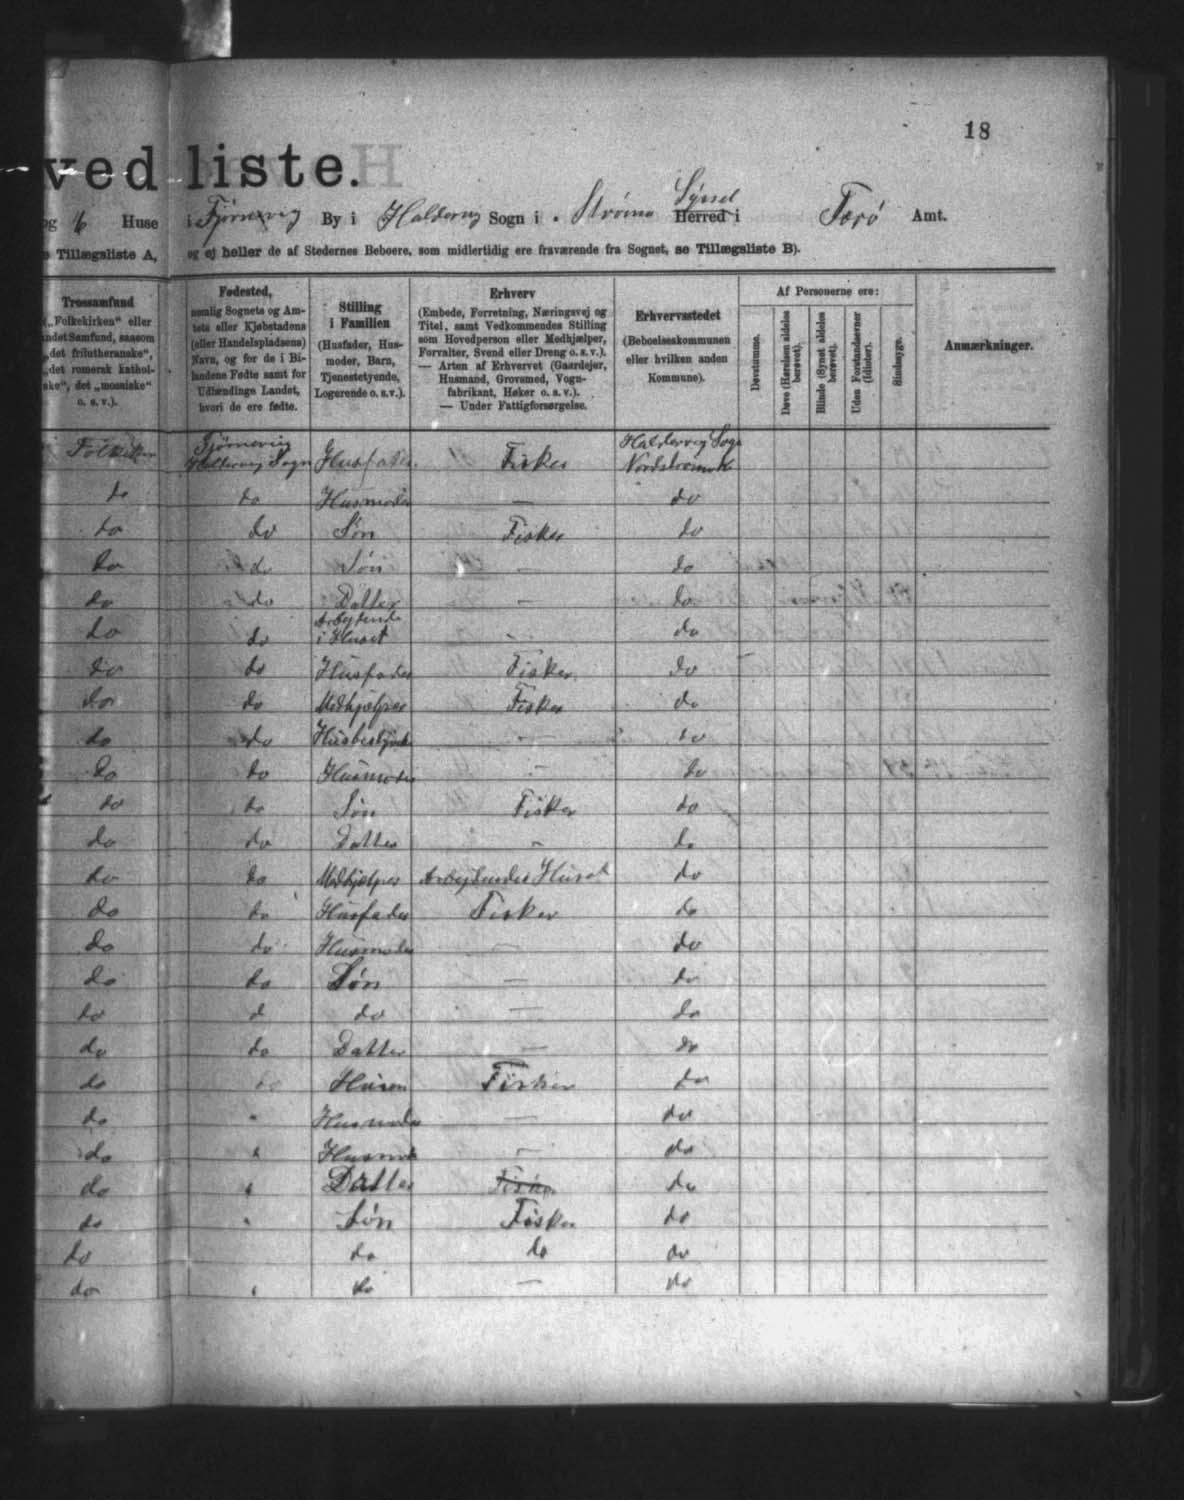 18
ved liste.
og 6 Huse i Tjørnevig By i Haldervig Sogn i Strömø Syssel Herred i Færø Amt.
Tillægsliste A, og ej heller de af Stedernes Beboere, som midlertidig ere fraværende fra Sognet, se Tillægsliste B).
Trossamfund
(„Folkekirken“ eller
andet Samfund, saasom
„det frilutheranske“,
„det romersk kathol-
ske“, det „mosaiske“
o. s. v.).
Fødested,
nemlig Sognets og Am-
tets eller Kjøbstadens
(eller Handelspladsens)
Navn, og for de i Bi-
landene Fødte samt for
Udlændinge Landet,
hvori de ere fødte.
Stilling
i Familien
(Husfader, Hus-
moder, Barn,
Tjenestetyende,
Logerende o. s. v.).
Erhverv
(Embede, Forretning, Næringsvej og
Titel, samt Vedkommendes Stilling
som Hovedperson eller Medhjælper,
Forvalter, Svend eller Dreng o. s. v.).
— Arten af Erhvervet (Gaardejer,
Husmand, Grovsmed, Vogn-
fabrikant, Høker o. s. v.).
— Under Fattigforsørgelse.
Erhvervsstedet
(Beboelseskommunen
eller hvilken anden
Kommune).
Af Personerne ere:
Døvstumme.
Døve (Hørelsen aldeles
berøvet).
Blinde (Synet aldeles
berøvet).
Uden Forstandsevner
(Idioter).
Sindssyge.
Anmærkninger.
Tjørnevig Haldervig Sogn Husfader Fisker Haldervig Sogn
do do Husmoder — do
do do Søn Fisker do
do do Søn — do
do do Datter — do
do do Arbejdende i Huset — do
do do Husfader Fisker do
do do Medhjælper Fisker do
do do — do
do do Husmoder — do
do do Søn Fisker do
do do Datter — do
do do Medhjælper Arbejdende i Huset do
do do Husfader Fisker do
do do Husmoder — do
do do Søn — do
do d do — do
do do Datter — do
do do Fisker do
do " Husmoder — do
do " — do
do " Datter Fisker do
do " Søn Fisker do
do do do do
do " do — do